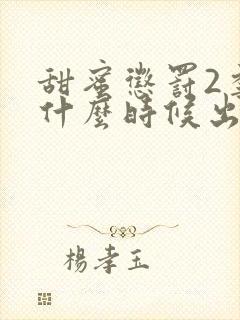 甜蜜懲罰2
什麼時候出
楊孝玉